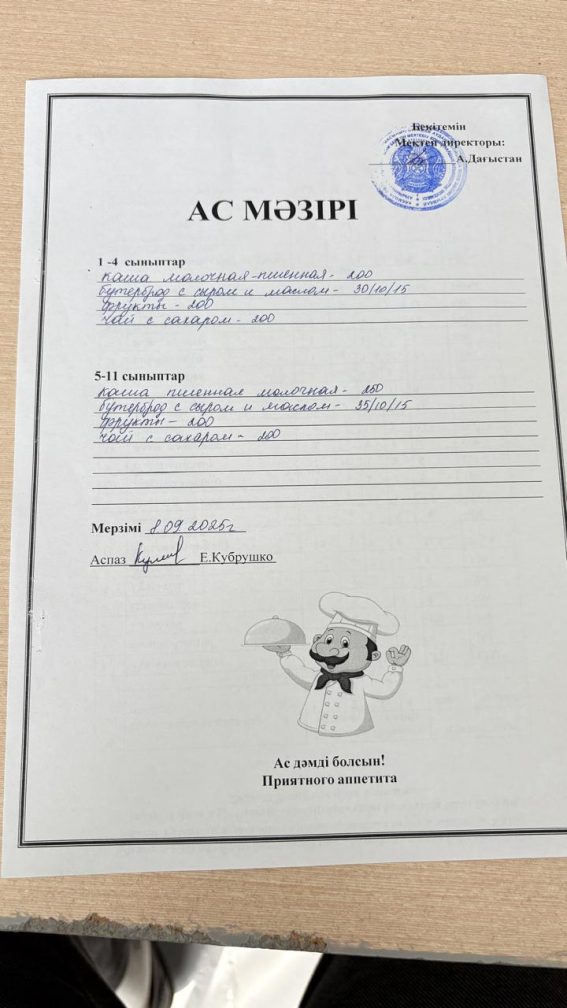 Бекітемін
Мектеп директоры:
А.Дағыстан
АС МӘЗІРІ
1 -4 сыныптар
каша молочная-пшенная - 200
бутерброд с сыром и маслом - 30/10/15
фрукты - 200
чай с сахаром - 200
5-11 сыныптар
каша пшенная молочная - 250
бутерброд с сыром и маслом - 35/10/15
фрукты - 200
чай с сахаром - 200
Мерзімі 8.09 2025г
Аспаз Е.Кубрушко
Ас дәмді болсын!
Приятного аппетита